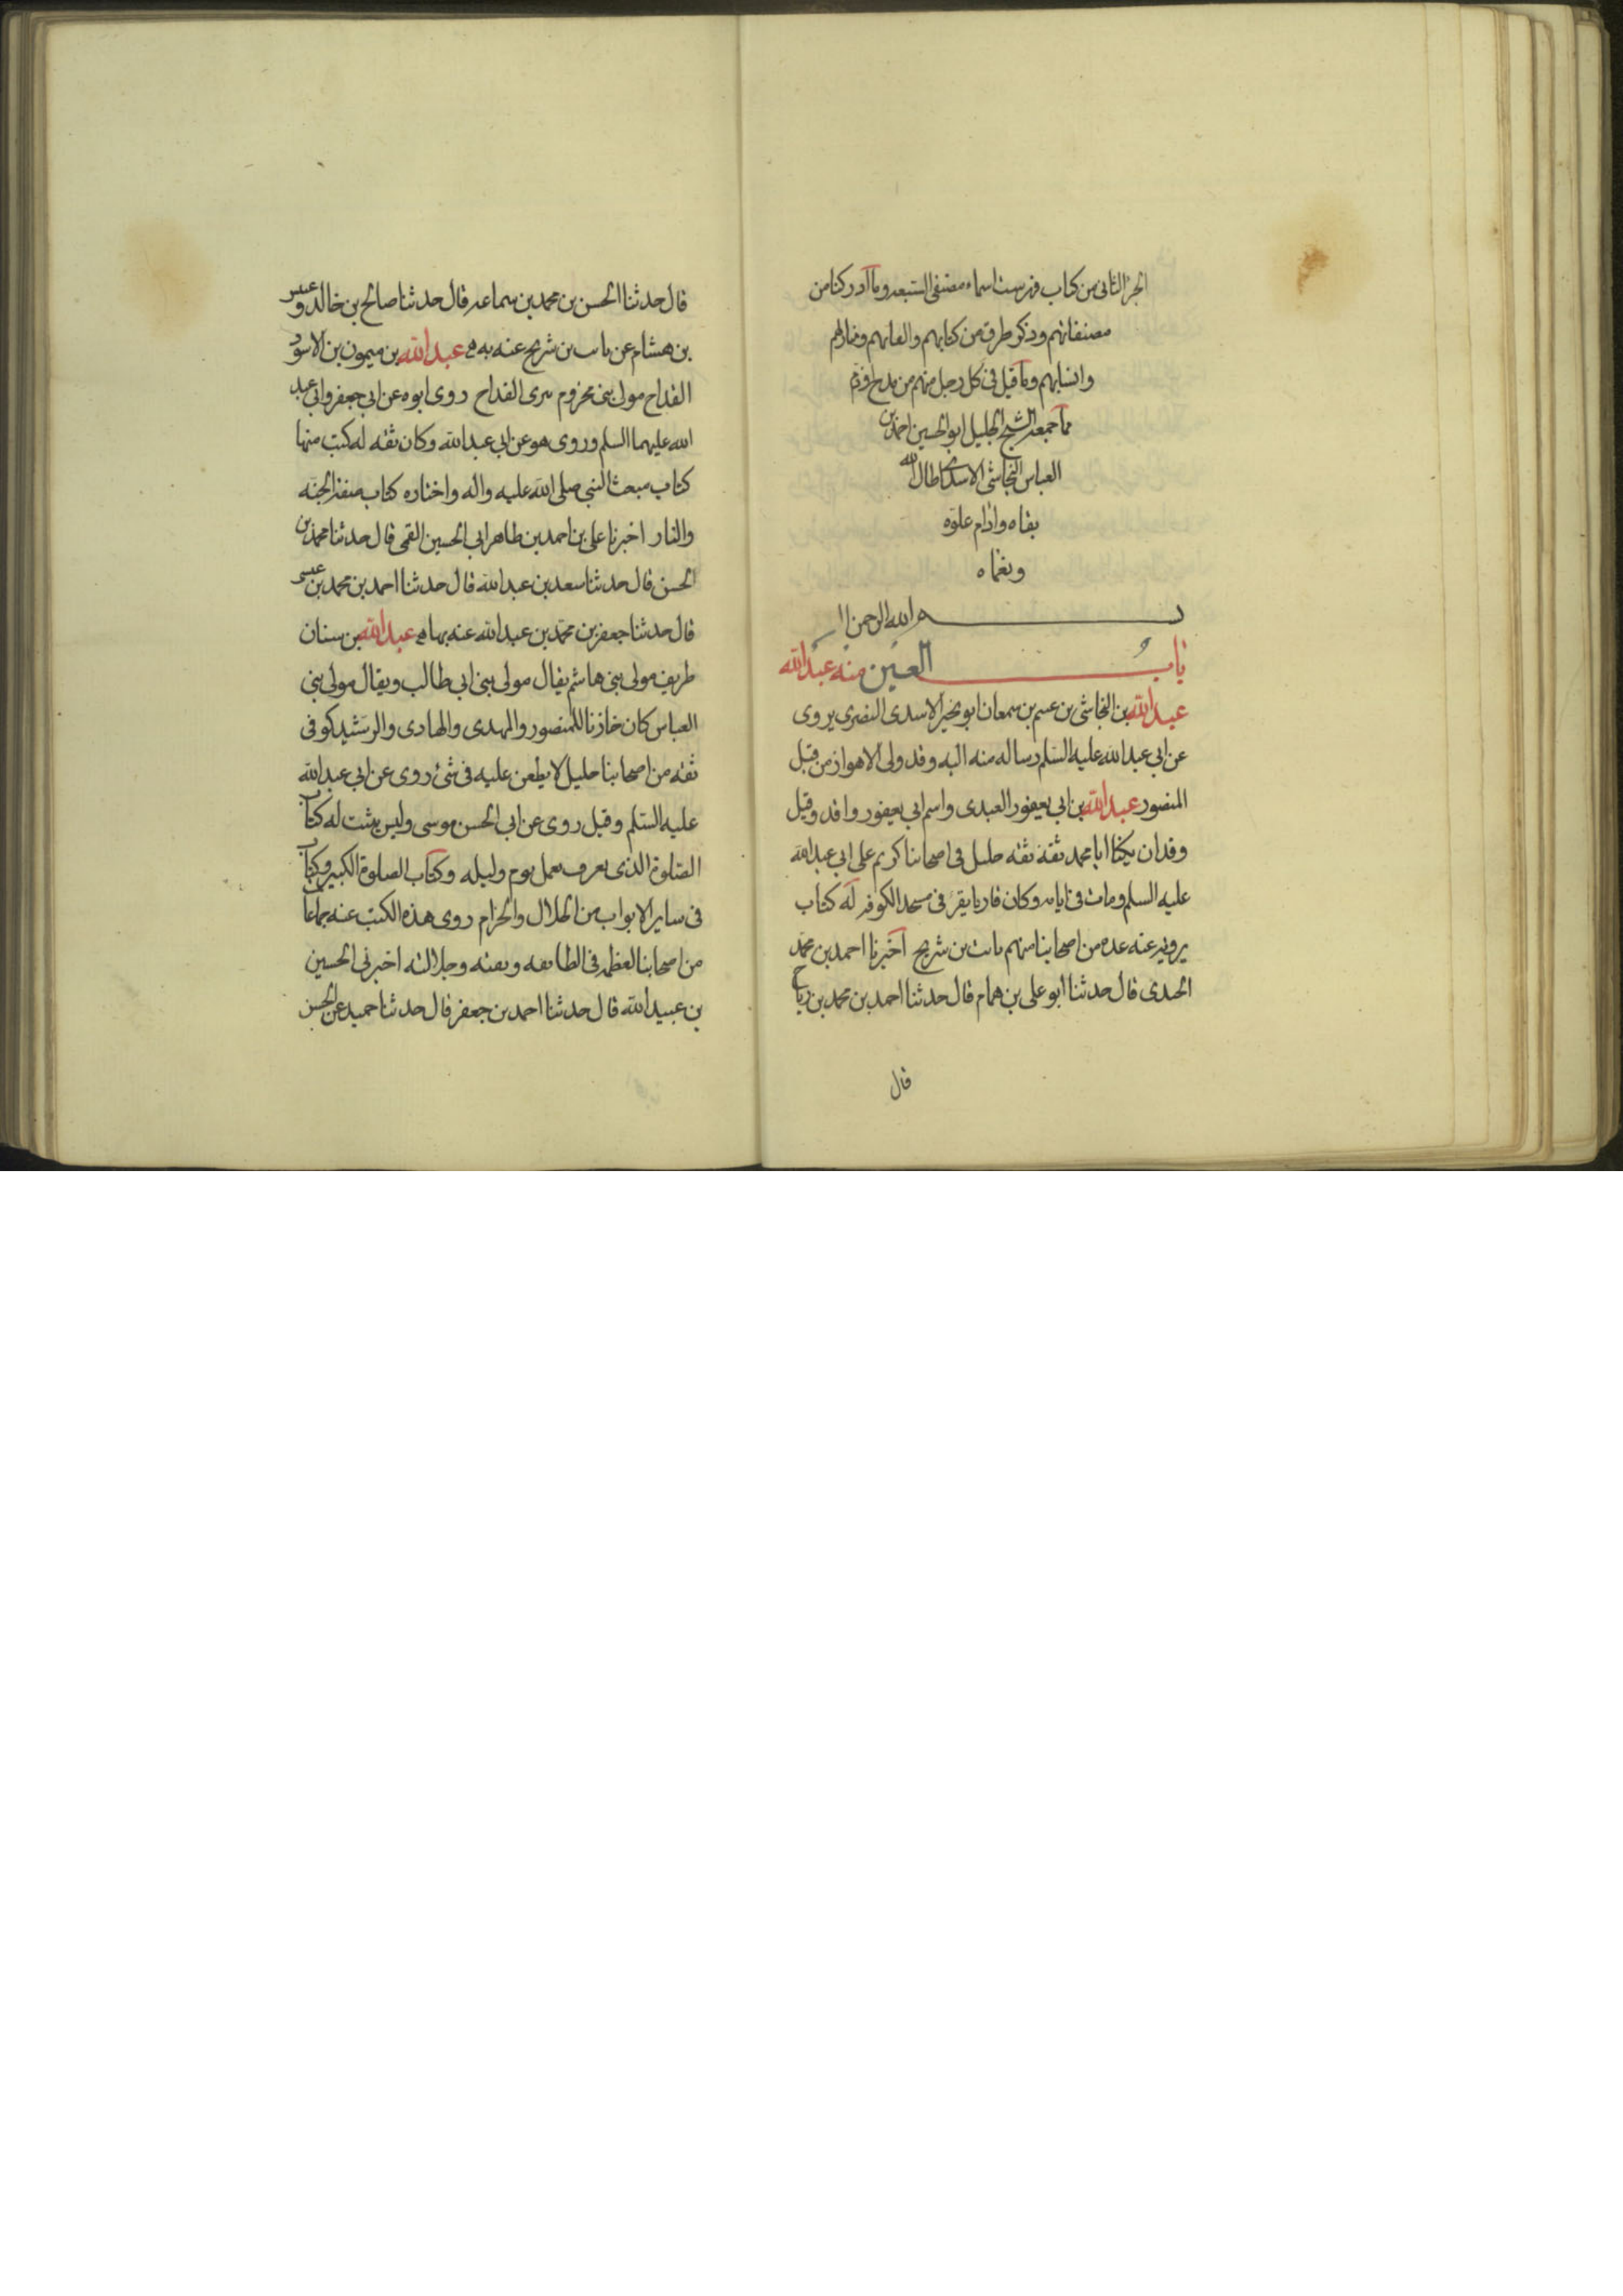 الجزء الثانى من كتاب فهرست اسماء مصنفى الشيعه وما ادركنا من
مصنفاتهم وذكر طرف من كناهم والقابهم ومنازلهم
وانسابهم وما قيل فى كل رجل منهم من مدح او ذم
مما جمعه الشيخ الجليل ابو الحسين احمد بن
العباس النجاشى الاسدى اطال الله
بقاه وادام علوه
ونعماه
بسم الله الرحمن ا
باب العين منه عبد الله
عبد الله بن النجاشى بن عسم بن سمعان ابو بجير الاسدى النصرى يروى
عن ابى عبد الله عليه السلم رساله منه اليه وقد ولى الاهواز من قبل
المنصور عبد الله بن ابى يعفور العبدى واسم ابى يعفور واقد وقيل
وقدان يكنا ابا محمد ثقة ثقه جليل فى اصحابنا كريم على ابى عبد الله
عليه السلم ومات فى ايامه وكان قاريا يقرئ فى مسجد الكوفه له كتاب
يرويه عنه عده من اصحابنا منهم ثابت بن شريح اخبرنا احمد بن محمد
الجندى قال حدثنا ابو على بن همام قال حدثنا احمد بن محمد بن رباح
قال
قال حدثنا الحسن بن محمد بن سماعه قال حدثنا صالح بن خالد وعبيس
بن هشام عن ثابت بن شريح عنه به عبد الله بن ميمون بن الاسود
القداح مولى بنى مخزوم يبرى القداح روى ابوه عن ابى جعفر وابى عبد
الله عليهما السلم وروى هو عن ابى عبد الله وكان ثقه له كتب منها
كتاب مبعث النبى صلى الله عليه واله واخباره كتاب صفة الجنه
والنار اخبرنا على بن احمد بن طاهر ابى الحسين القمى قال حدثنا محمد بن
الحسن قال حدثنا سعد بن عبد الله قال حدثنا احمد بن محمد بن عيسى
قال حدثنا جعفر بن محمد بن عبد الله عنه بها عبد الله بن سنان
طريف مولى بنى هاشم يقال مولى بنى ابى طالب ويقال مولى بنى
العباس كان خازنا للمنصور والمهدى والهادى والرشيد كوفى
ثقه من اصحابنا جليل لا يطعن عليه فى شئ روى عن ابى عبد الله
عليه السلم وقيل روى عن ابى الحسن موسى وليس يثبت له كتاب
الصلوة الذى يعرف بعمل يوم وليله وكتاب الصلوة الكبير وكتاب
فى ساير الابواب من الحلال والحرام روى هذه الكتب عنه جماعات
من اصحابنا لعظمه فى الطايفه وثقته وجلالته اخبرنى الحسين
بن عبيد الله قال حدثنا احمد بن جعفر قال حدثنا حميد عن الحسن